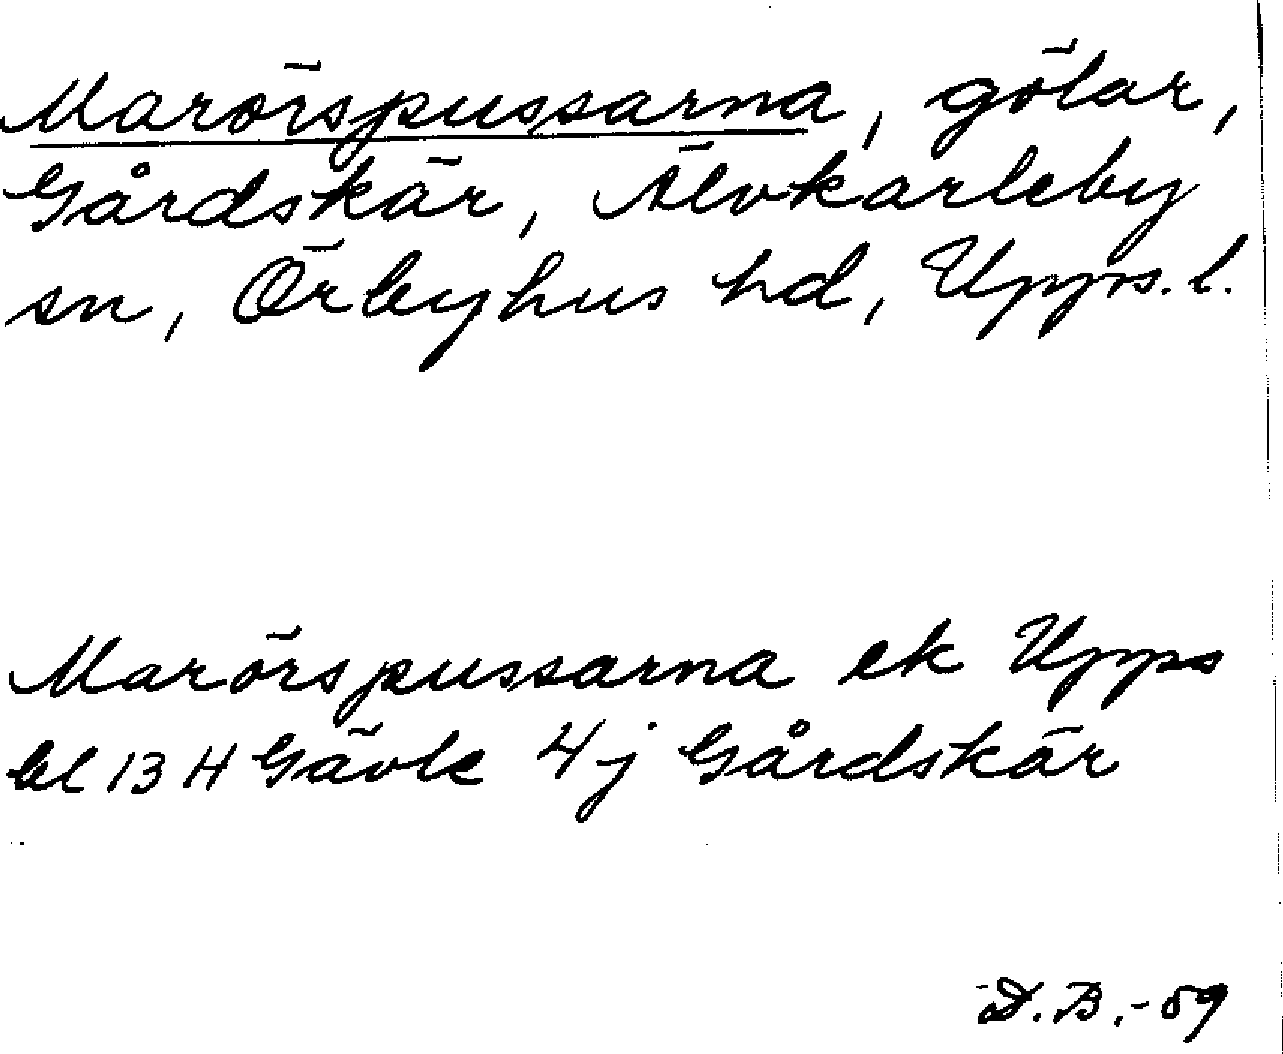 Marörspussarna, gölar,
Gårdskär, Älvkarleby
sn, Örbyhus hd, Upps. l.
Marörspussarna ek Upps
bl 13 H Gävle 4 j Gårdskär
D. B. -59